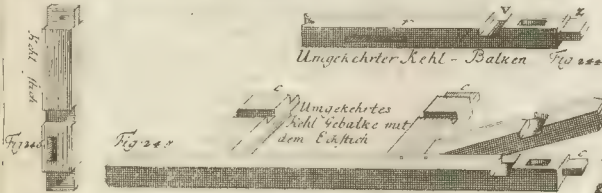 Kehl stich
V
Z
r
Umgekehrter Kehl - Balken Fig 244
C
C
Umgekehrtes
Kehl Gebalke mit
dem Eckstich
C
C